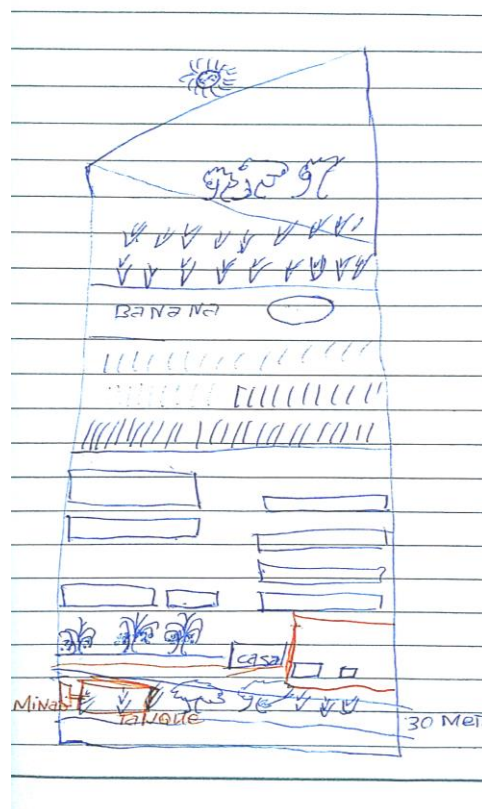 BANANA
casa
Minas
TANQUE
30 Met